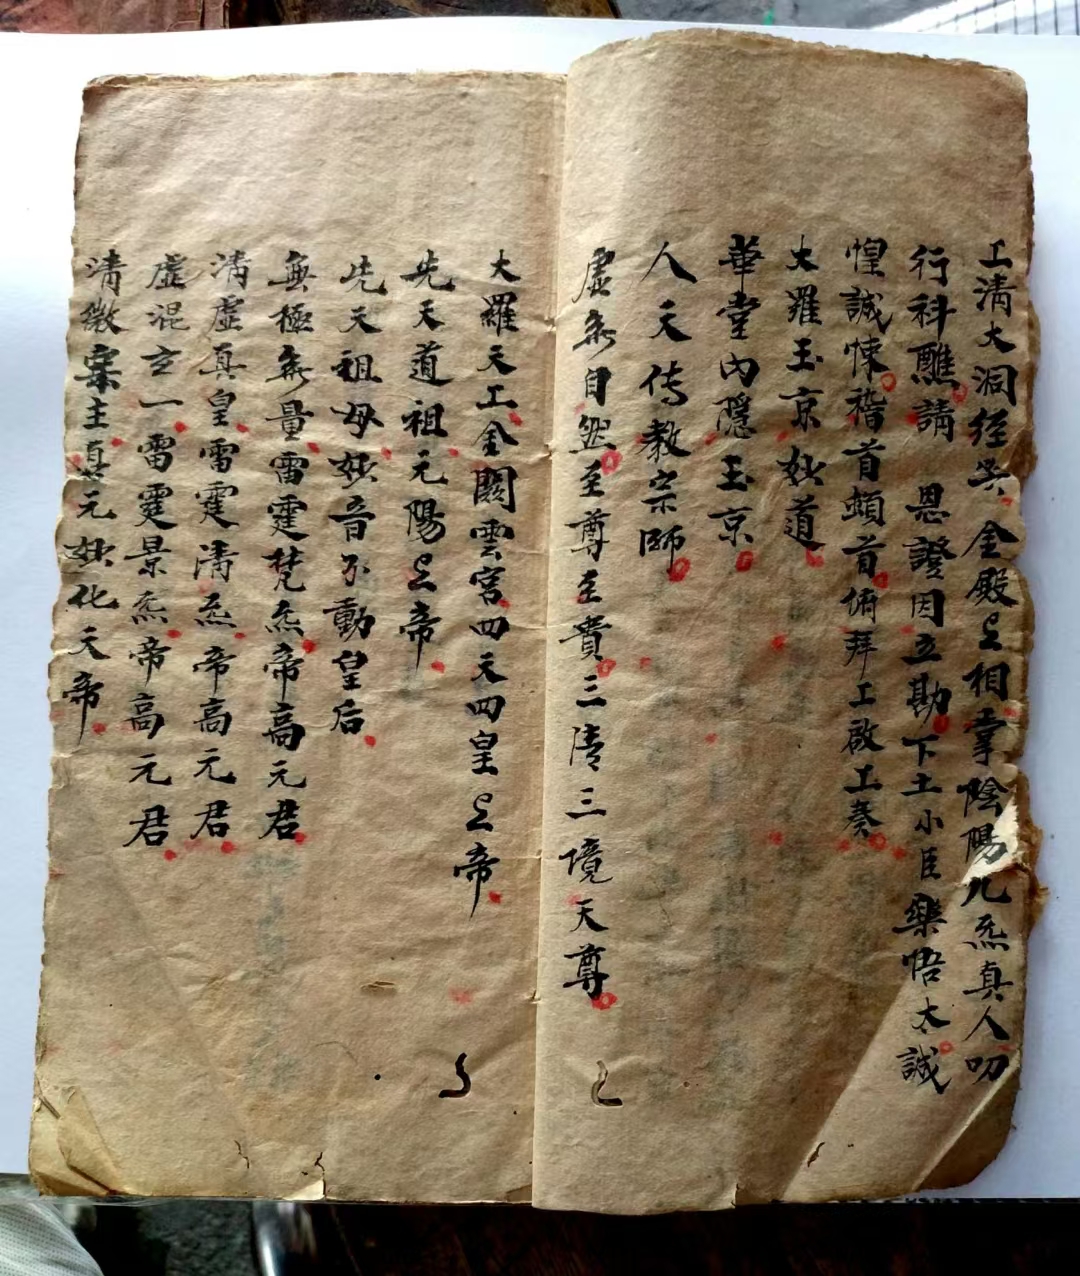 上清大洞經籙金殿上相掌陰陽九炁真人叨
行科醮請恩證因立勘下土小臣樂悟太誠
惶誠悚稽首頓首俯拜上啟上奏
大羅玉京妙道
華堂內隱玉京
人天傳教宗師
虛無自然至尊至貴三清三境天尊
大羅天上金闕雲宮四天四皇上帝
先天道祖元陽上帝
先天祖母妙音不動皇后
無極無量雷霆梵炁帝高元君
清虛真皇雷霆清炁帝高元君
虛混玄一雷霆景炁帝高元君
清微宗主真元妙化天帝